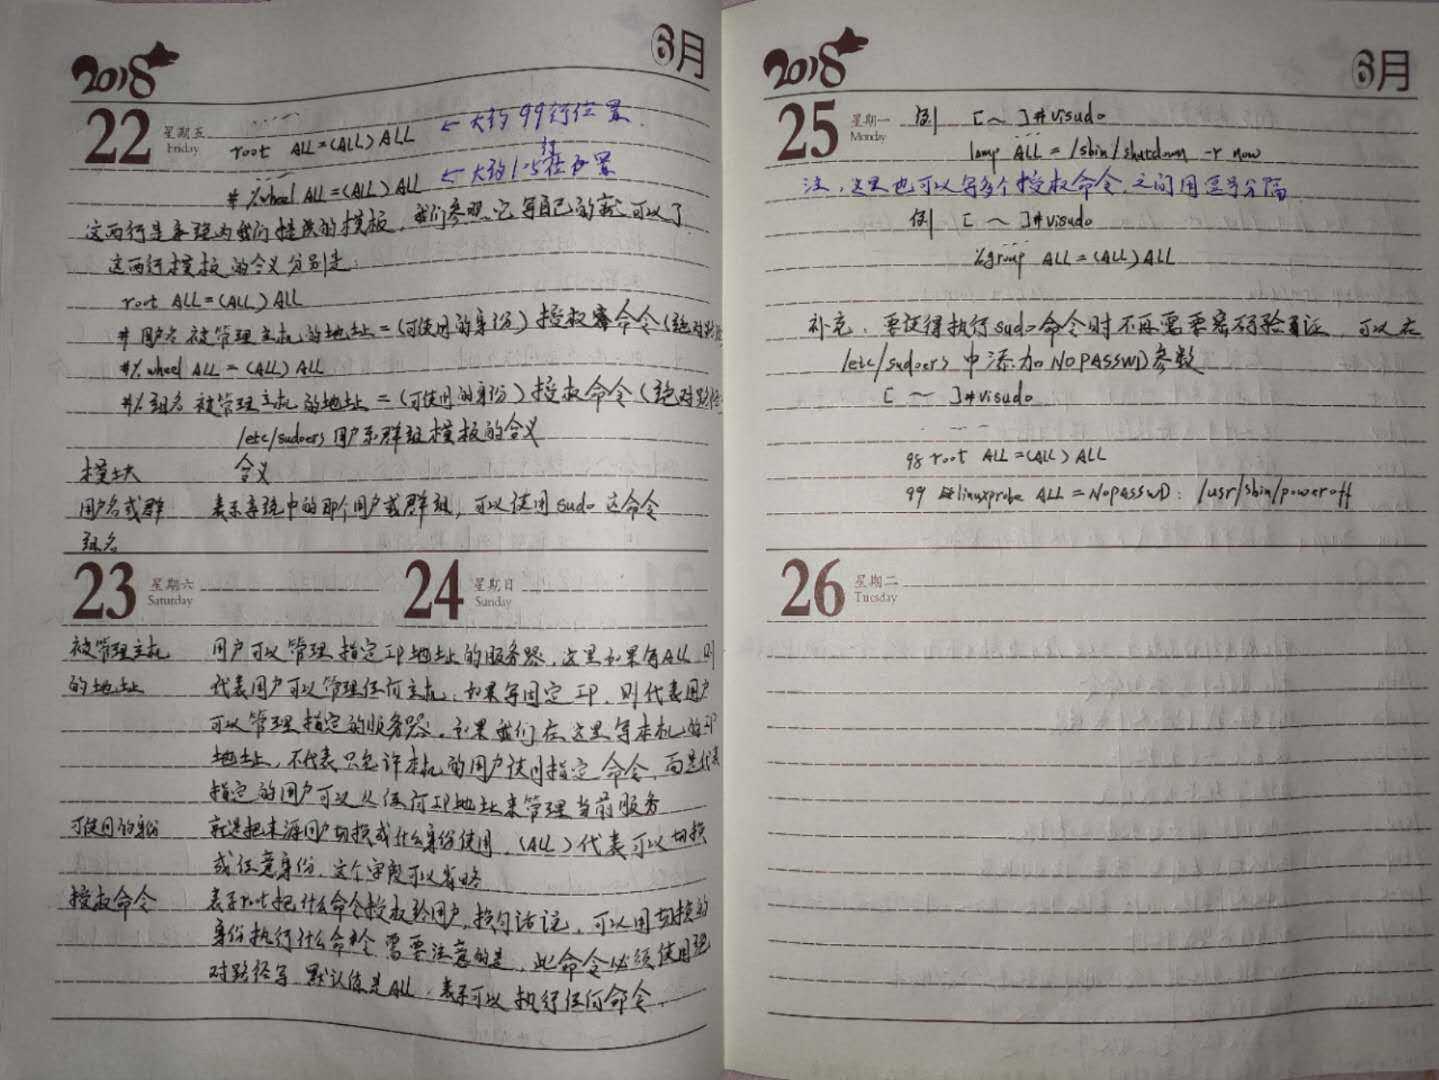 2018 6月
22 星期五 Friday
......
root ALL=(ALL) ALL ← 大约99行位置
# %wheel ALL=(ALL) ALL ← 大约1-5行位置
这两行是系统为我们提供的模板,我们参照它写自己的就可以了
这两行模板的含义分别是:
root ALL=(ALL) ALL
# 用户名 被管理主机的地址=(可使用的身份) 授权命令(绝对路径
#% wheel ALL=(ALL) ALL
#% 组名 被管理主机的地址=(可使用的身份) 授权命令(绝对路径
/etc/sudoers 用户和群组模板的含义
模块 含义
用户名或群 表示系统中的那个用户或群组,可以使用sudo这命令
组名
23 星期六 Saturday 24 星期日 Sunday
被管理主机 用户可以管理指定IP地址的服务器,这里如果写ALL,则
的地址 代表用户可以管理任何主机,如果写固定IP,则代表用户
可以管理指定的服务器,如果我们在这里写本机的IP
地址,不代表只允许本机的用户使用指定命令,而是代表
指定的用户可以从任何IP地址来管理当前服务
可使用的身份 就是把来源用户切换成什么身份使用,(ALL)代表可以切换
成任意身份,这个字段可以省略
授权命令 表示root把什么命令授权给用户,换句话说,可以用切换的
身份执行什么命令,需要注意的是,此命令必须使用绝
对路径写,默认值是ALL,表示可以执行任何命令.
2018 6月
25 星期一 Monday 例 [ ~ ]#visudo
......
lamp ALL=/sbin/shutdown -r now
注,这里也可以写多个授权命令,之间用逗号分隔
例 [ ~ ]#visudo
......
%group ALL=(ALL) ALL
补充:要使得执行sudo命令时不再需要密码验证,可以在
/etc/sudoers 中添加NOPASSWD参数
[ ~ ]#visudo
......
98 root ALL=(ALL) ALL
99 linuxprobe ALL=NOPASSWD: /usr/sbin/poweroff
26 星期二 Tuesday